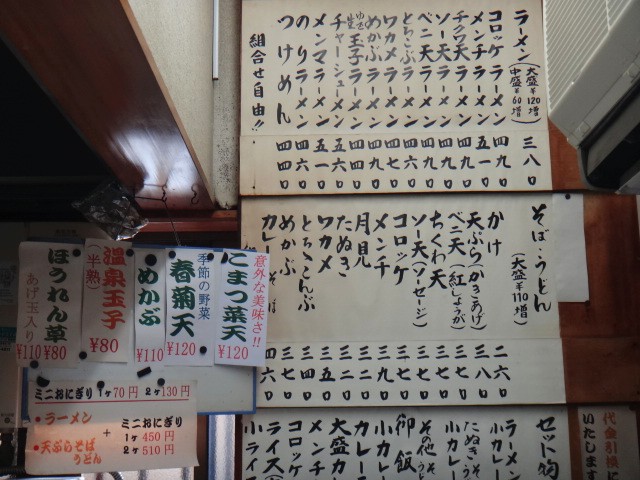 ラーメン(大盛¥120増 中盛¥60増) 三八〇
コロッケラーメン 四九〇
メンチラーメン 五一〇
チクワ天ラーメン 四九〇
ソー天ラーメン 四九〇
ベニ天ラーメン 四九〇
とろろこぶラーメン 四六〇
ワカメラーメン 四七〇
めかぶラーメン 四九〇
玉子ラーメン 四六〇
チャーシューメン 五六〇
メンマラーメン 五一〇
のりラーメン 四六〇
つけめん 四四〇
組合せ自由!!
そば・うどん(大盛¥110増)
かけ 二六〇
天ぷら(かきあげ) 三八〇
ベニ天(紅しょうが) 三七〇
ちくわ天 三七〇
ソー天(ソーセージ) 三七〇
コロッケ 三七〇
メンチ 三九〇
月見 三二〇
たぬき 三二〇
ワカメ 三五〇
とろろこんぶ 三四〇
めかぶ 三七〇
カレー 四六〇
意外な美味さ!!
こまつ菜天 ¥120
季節の野菜
春菊天 ¥120
めかぶ ¥110
温泉玉子 ¥80
(半熟)
ほうれん草 ¥80
あげ玉入り ¥110
ミニおにぎり 1ヶ70円 2ヶ130円
・ラーメン
・天ぷらそば
うどん
+
ミニおにぎり
1ヶ 450円
2ヶ 510円
代金引換に
いたします
セット物
ラーメン
小カレー
たぬきそ
小カレー
その他そ
御飯
小カレ
カレー
大盛カ
メンチ
コロッケ
ライス
小ライ